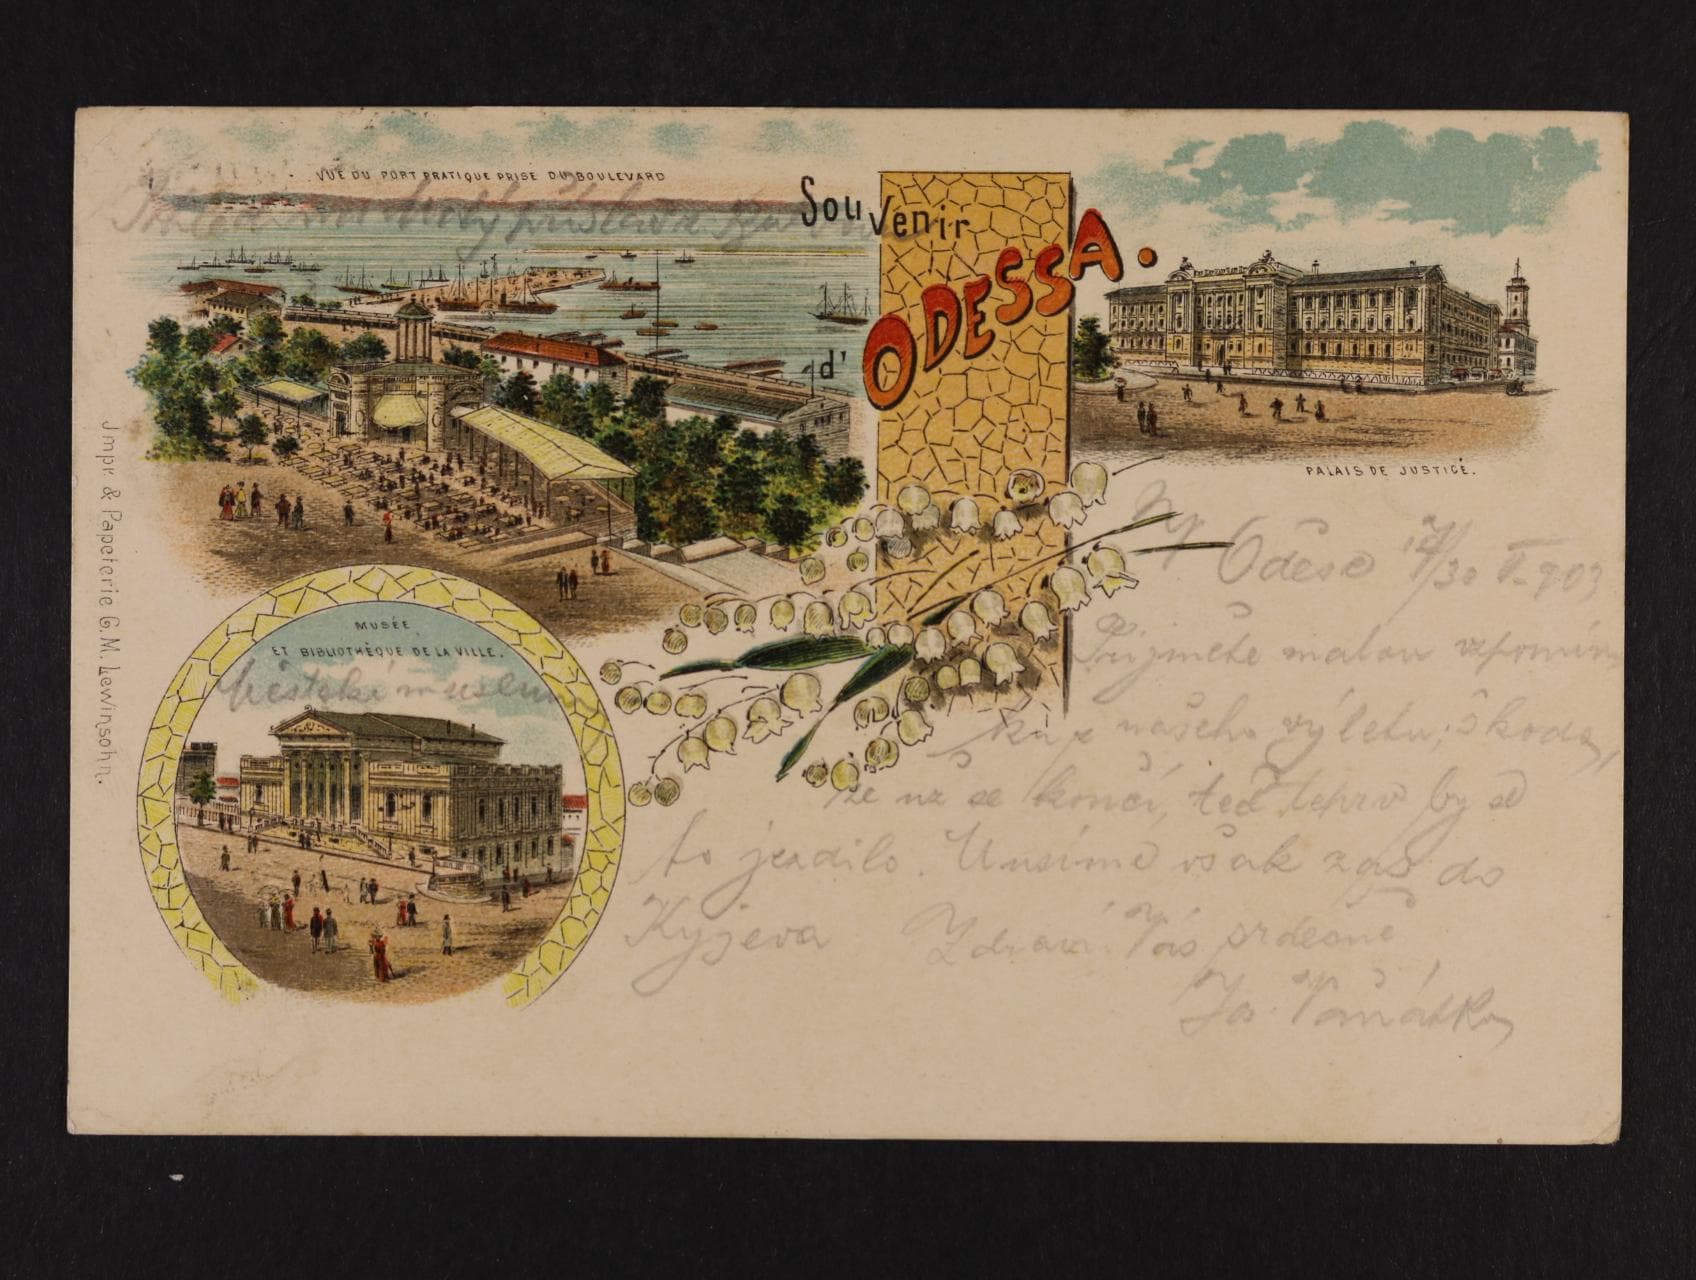 VUE DU PORT PRATIQUE PRISE DU BOULEVARD
Souvenir
d'ODESSA.
PALAIS DE JUSTICE.
MUSÉE
ET BIBLIOTHÈQUE DE LA VILLE.
Městské museum
Jmpr & Papeterie G. M. Lewinsohn.
Oděse 17/30 V. 903
Přijměte malou vzpomín
ku z našeho výletu; škoda,
že už se končí, teď teprv by se
to jezdilo. Musíme však zas do
Kyjeva Zdraví Vás srdečně